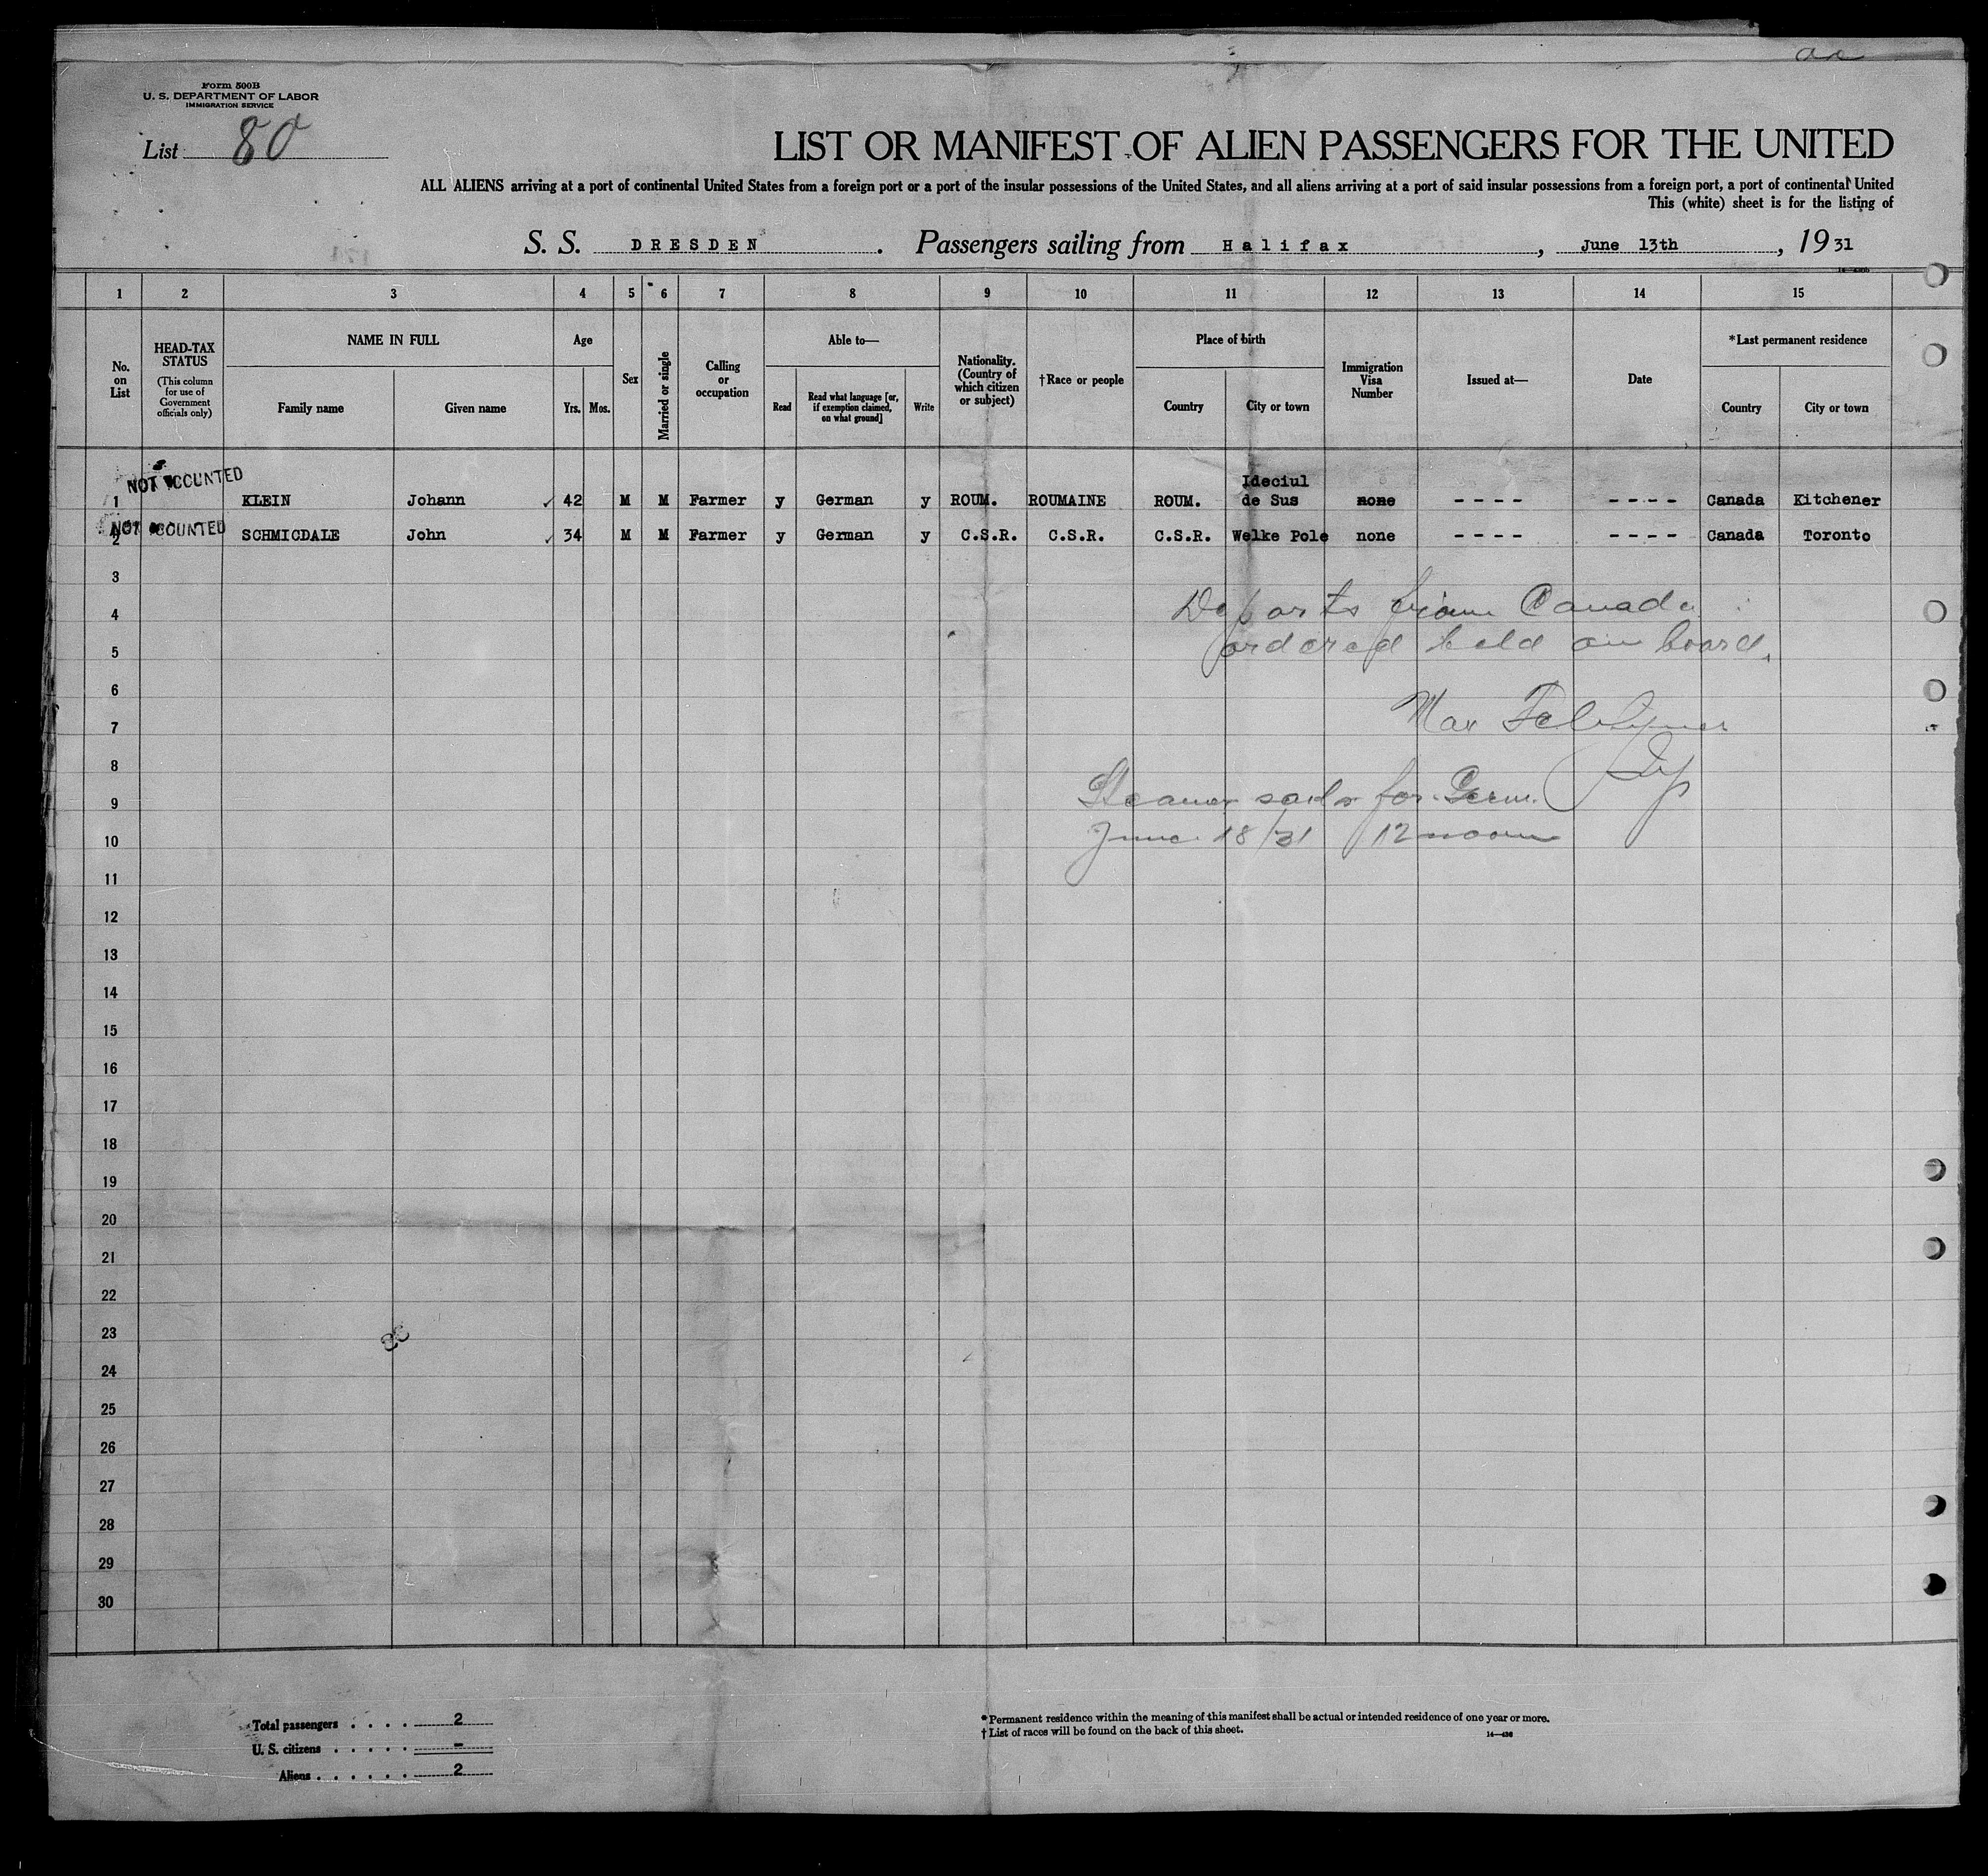 Form 500B
U. S. DEPARTMENT OF LABOR
IMMIGRATION SERVICE
List 80
LIST OR MANIFEST OF ALIEN PASSENGERS FOR THE UNITED
ALL ALIENS arriving at a port of continental United States from a foreign port or a port of the insular possessions of the United States, and all aliens arriving at a port of said insular possessions from a foreign port, a port of continental United
This (white) sheet is for the listing of
S. S. DRESDEN . Passengers sailing from Halifax , June 13th , 19 31
1 2 3 4 5 6 7 8 9 10 11 12 13 14 15
No. on List
HEAD-TAX STATUS (This column for use of Government officials only)
NAME IN FULL
Family name Given name
Age
Yrs. Mos.
Sex
Married or single
Calling or occupation
Able to—
Read
Read what language [or, if exemption claimed, on what ground]
Write
Nationality. (Country of which citizen or subject)
†Race or people
Place of birth
Country City or town
Immigration Visa Number
Issued at—
Date
*Last permanent residence
Country City or town
NOT COUNTED
Ideciul
1 KLEIN Johann ✓ 42 M M Farmer y German y ROUM. ROUMAINE ROUM. de Sus none ---- ---- Canada Kitchener
NOT COUNTED
2 SCHMICDALE John ✓ 34 M M Farmer y German y C.S.R. C.S.R. C.S.R. Welke Pole none ---- ---- Canada Toronto
3
4 Deports from Canada
5 ordered held on board.
6
7 Max
8
9 Steamer sails for Germ.
10 June 18/31 12 noon
11
12
13
14
15
16
17
18
19
20
21
22
23
24
25
26
27
28
29
30
Total passengers . . . . 2
U. S. citizens . . . . . -
Aliens . . . . . . 2
*Permanent residence within the meaning of this manifest shall be actual or intended residence of one year or more.
†List of races will be found on the back of this sheet.